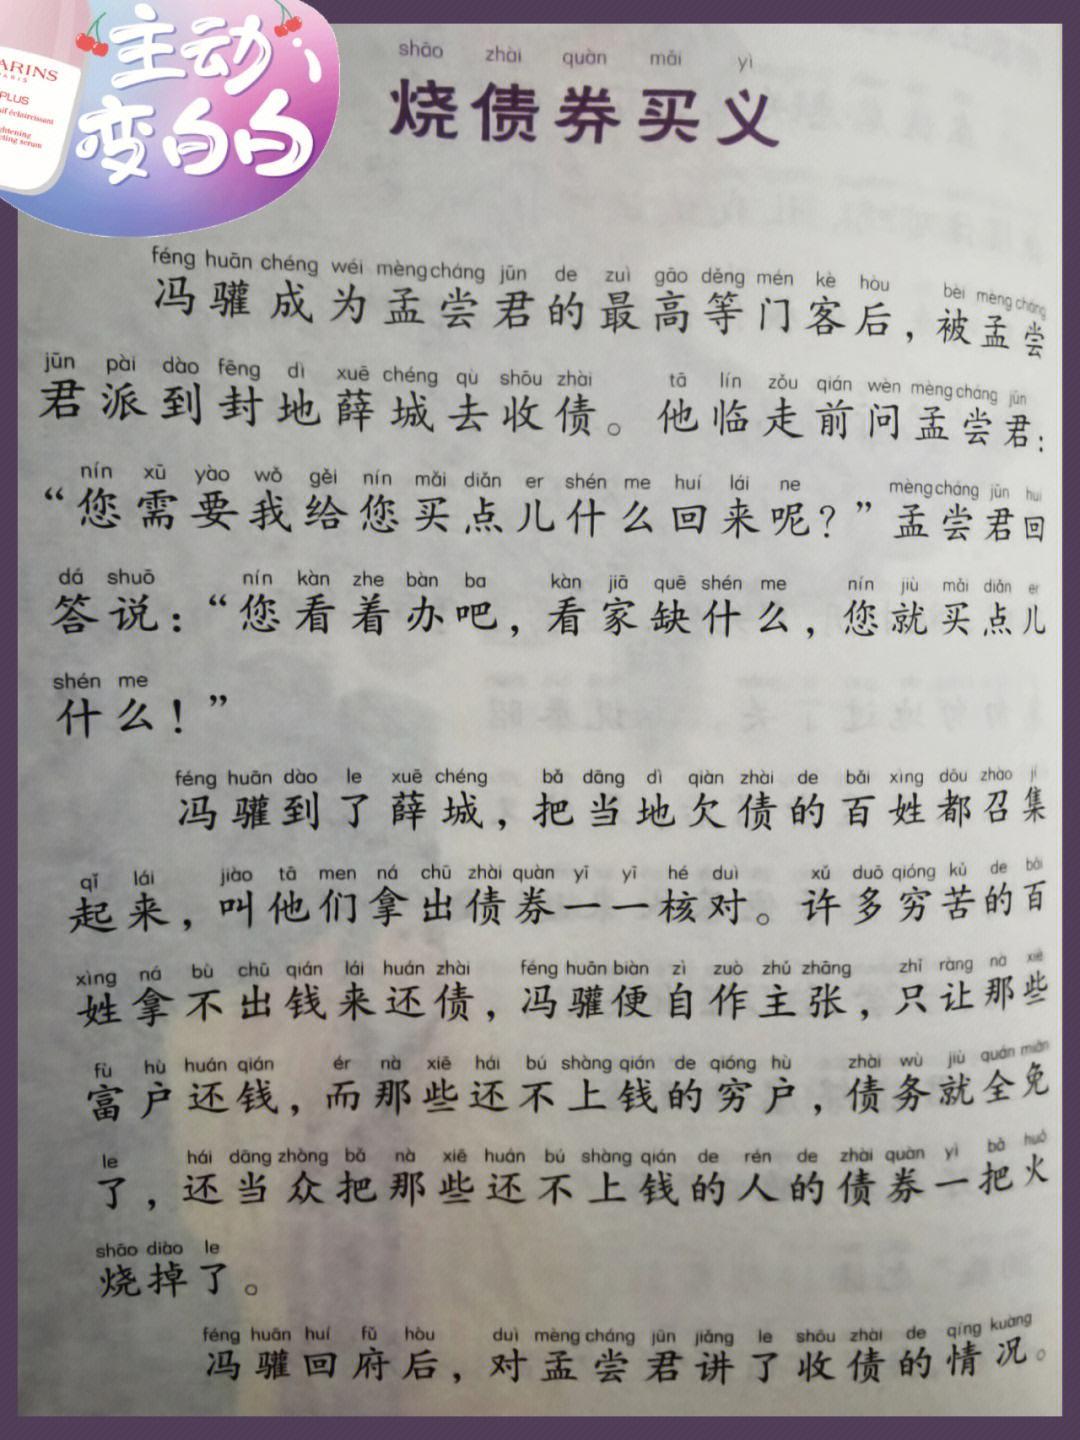 主动
变白白
ARINS
PARIS
PLUS
shāo zhài quàn mǎi yì
烧债券买义
féng huān chéng wéi mèng cháng jūn de zuì gāo děng mén kè hòu bèi mèng cháng
冯驩成为孟尝君的最高等门客后，被孟尝
jūn pài dào fēng dì xuē chéng qù shōu zhài tā lín zǒu qián wèn mèng cháng jūn
君派到封地薛城去收债。他临走前问孟尝君：
nín xū yào wǒ gěi nín mǎi diǎn er shén me huí lái ne mèng cháng jūn huí
“您需要我给您买点儿什么回来呢？”孟尝君回
dá shuō nín kàn zhe bàn ba kàn jiā quē shén me nín jiù mǎi diǎn er
答说：“您看着办吧，看家缺什么，您就买点儿
shén me
什么！”
féng huān dào le xuē chéng bǎ dāng dì qiàn zhài de bǎi xìng dōu zhào jí
冯驩到了薛城，把当地欠债的百姓都召集
qǐ lái jiào tā men ná chū zhài quàn yī yī hé duì xǔ duō qióng kǔ de bǎi
起来，叫他们拿出债券一一核对。许多穷苦的百
xìng ná bù chū qián lái huán zhài féng huān biàn zì zuò zhǔ zhāng zhǐ ràng nà xiē
姓拿不出钱来还债，冯驩便自作主张，只让那些
fù hù huán qián ér nà xiē hái bú shàng qián de qióng hù zhài wù jiù quán miǎn
富户还钱，而那些还不上钱的穷户，债务就全免
le hái dāng zhòng bǎ nà xiē huán bú shàng qián de rén de zhài quàn yì bǎ huǒ
了，还当众把那些还不上钱的人的债券一把火
shāo diào le
烧掉了。
féng huān huí fǔ hòu duì mèng cháng jūn jiǎng le shōu zhài de qíng kuàng
冯驩回府后，对孟尝君讲了收债的情况。